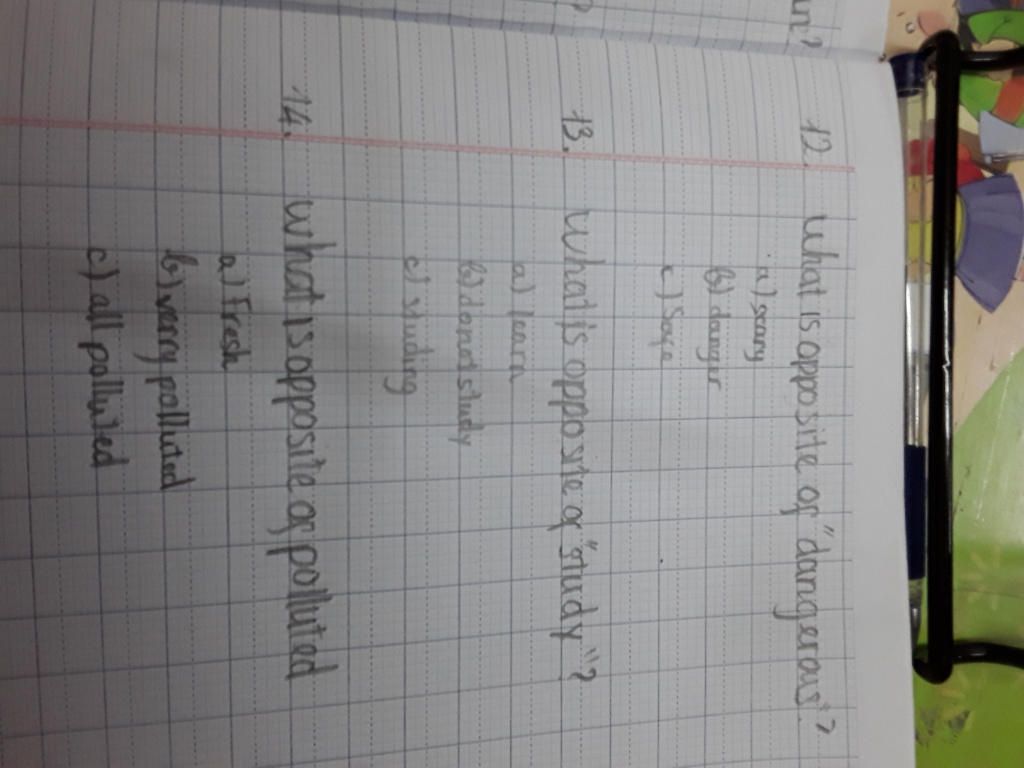 an?
?
12. What is opposite of "dangerous"?
a) scary
b) danger
c) Safe
13. What is opposite of "study"?
a) learn
b) do not study
c) studing
14. What is opposite of polluted
a) Fresh
b) verry polluted
c) all polluted